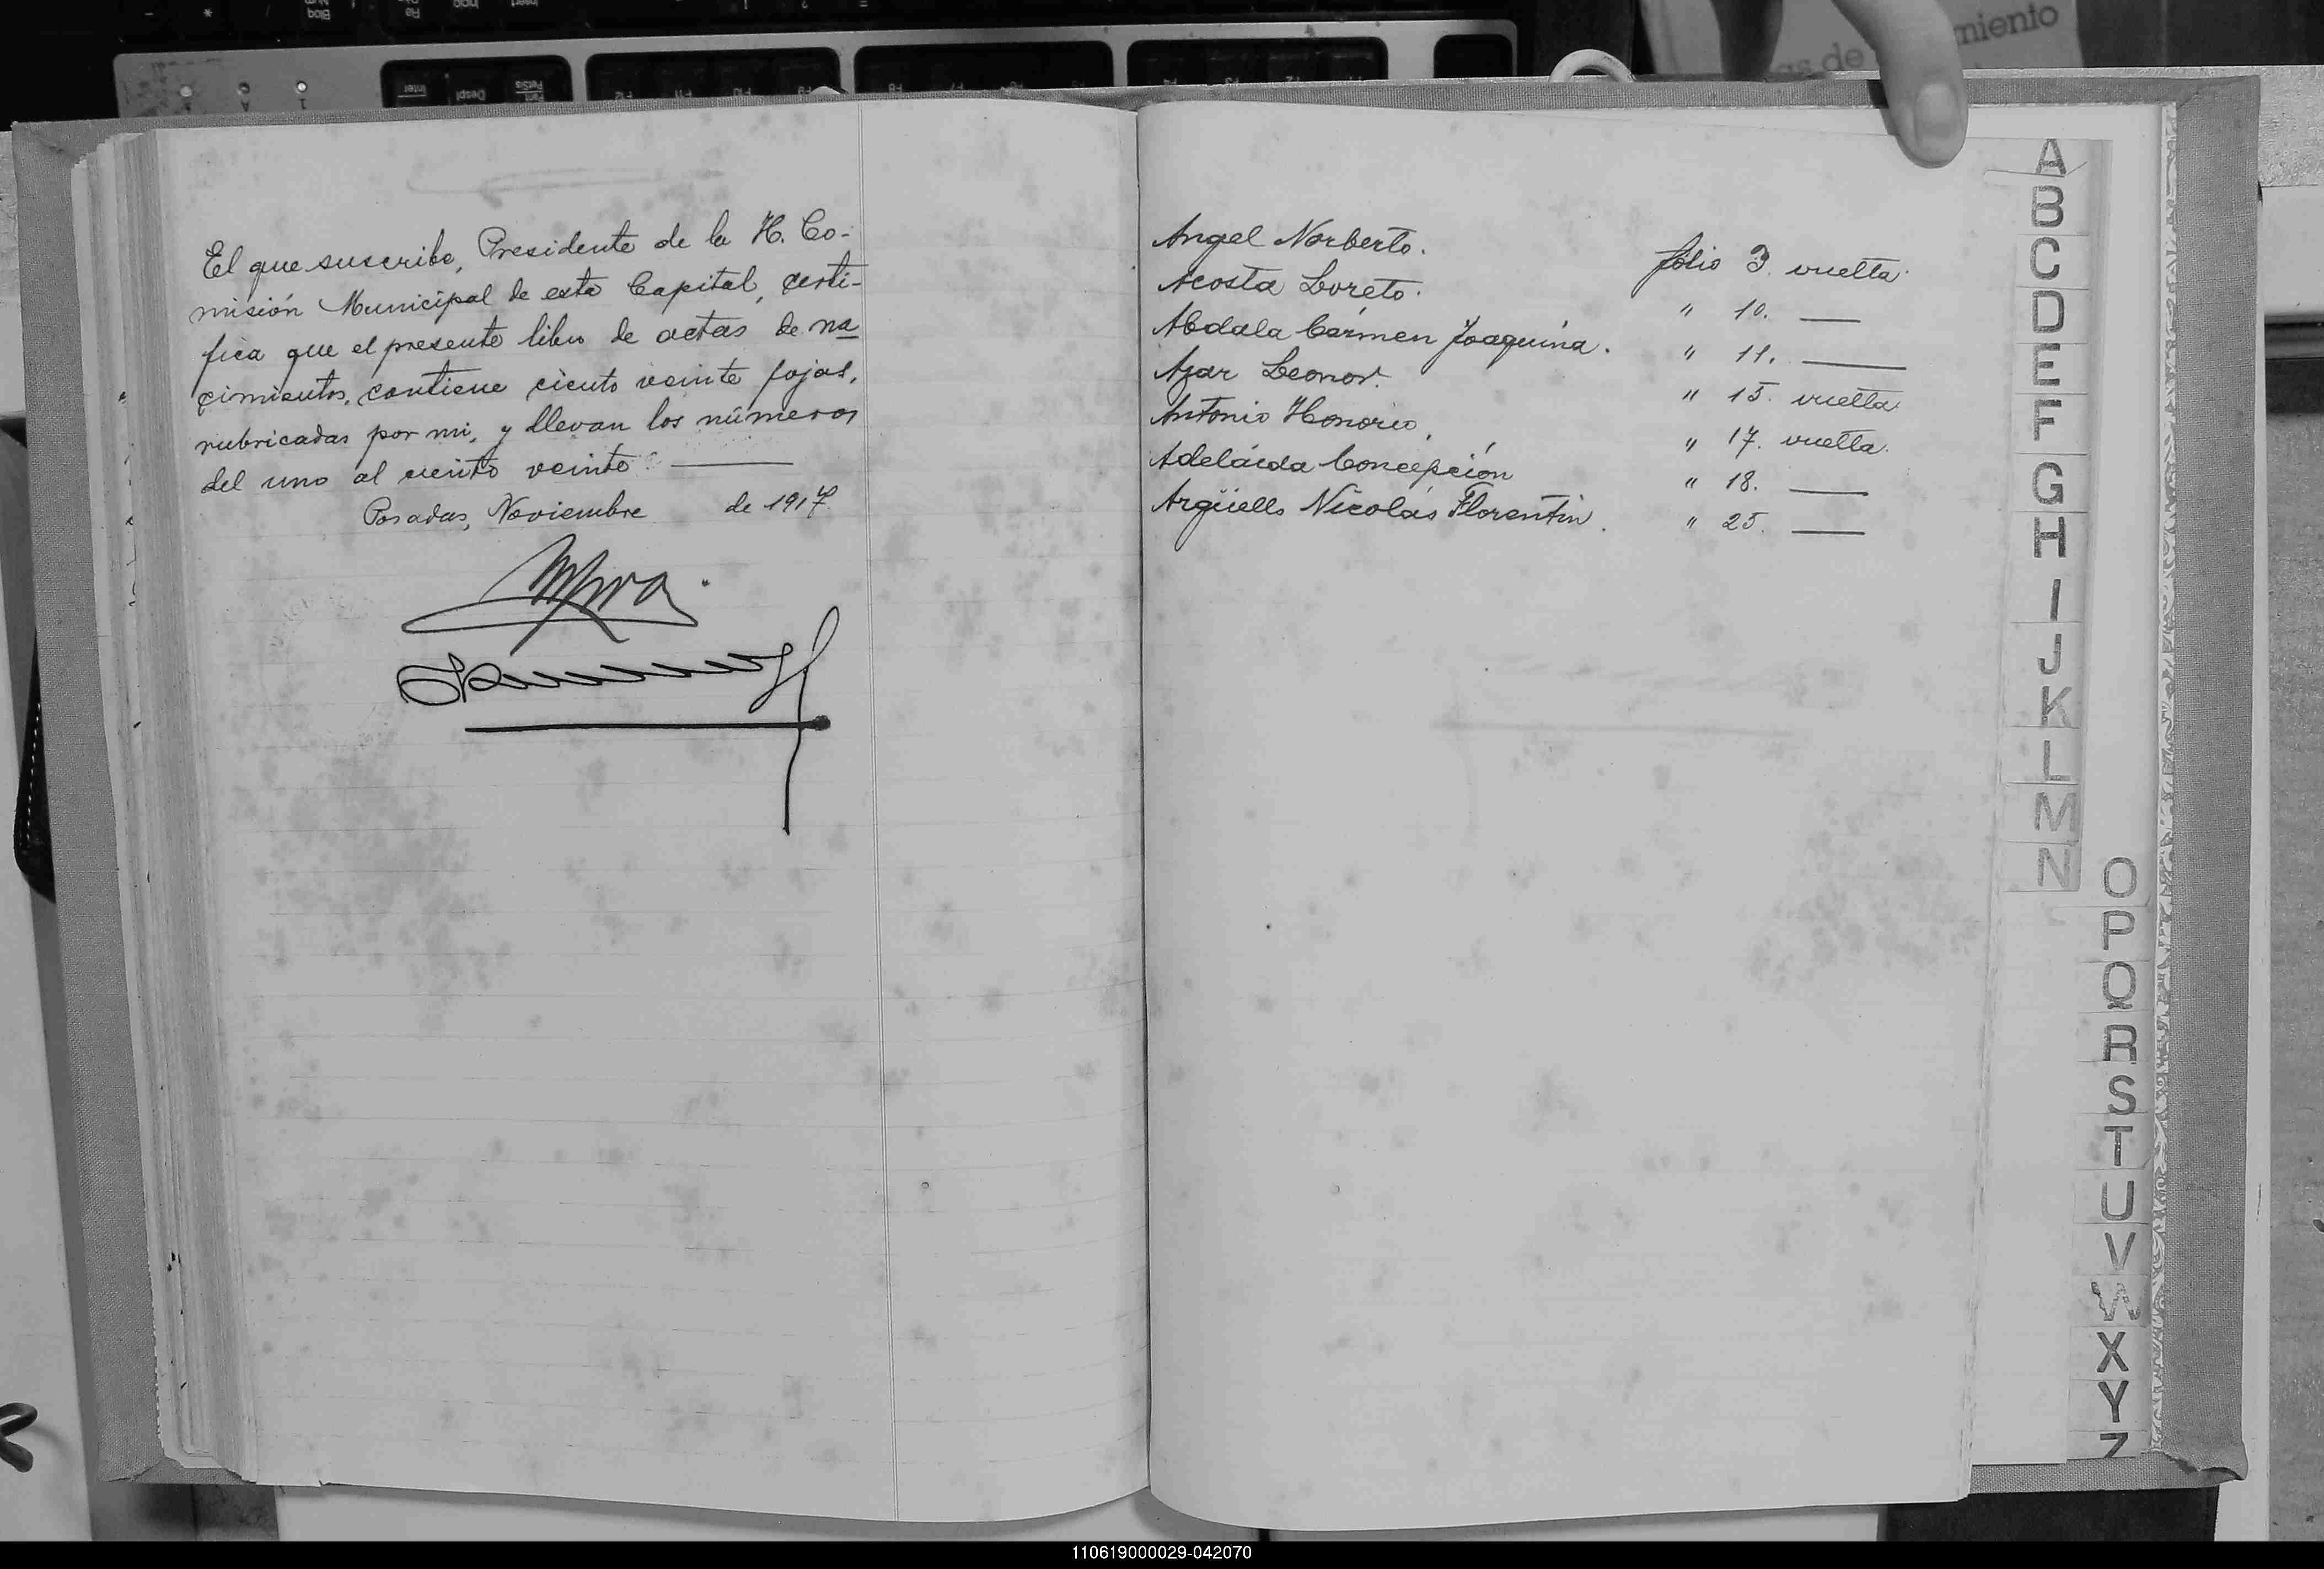 El que suscribe, Presidente de la H. Co-
misión Municipal de esta Capital, certi-
fica que el presente libro de actas de na
cimientos, contiene ciento veinte fojas,
rubricadas por mi, y llevan los números
del uno al ciento veinte
Posadas, Noviembre de 1917
Angel Norberto. folio 3. vuelta.
Acosta Loreto. " 10. —
Abdala Cármen Joaquina. " 11. —
Azar Leonor. " 15. vuelta.
Antonio Honorio. " 17. vuelta.
Adeláida Concepción " 18. —
Argüello Nicolás Florentin. " 25. —
A
B
C
D
E
F
G
H
I
J
K
L
M
N
O
P
Q
R
S
T
U
V
W
X
Y
Z
miento
de
110619000029-042070